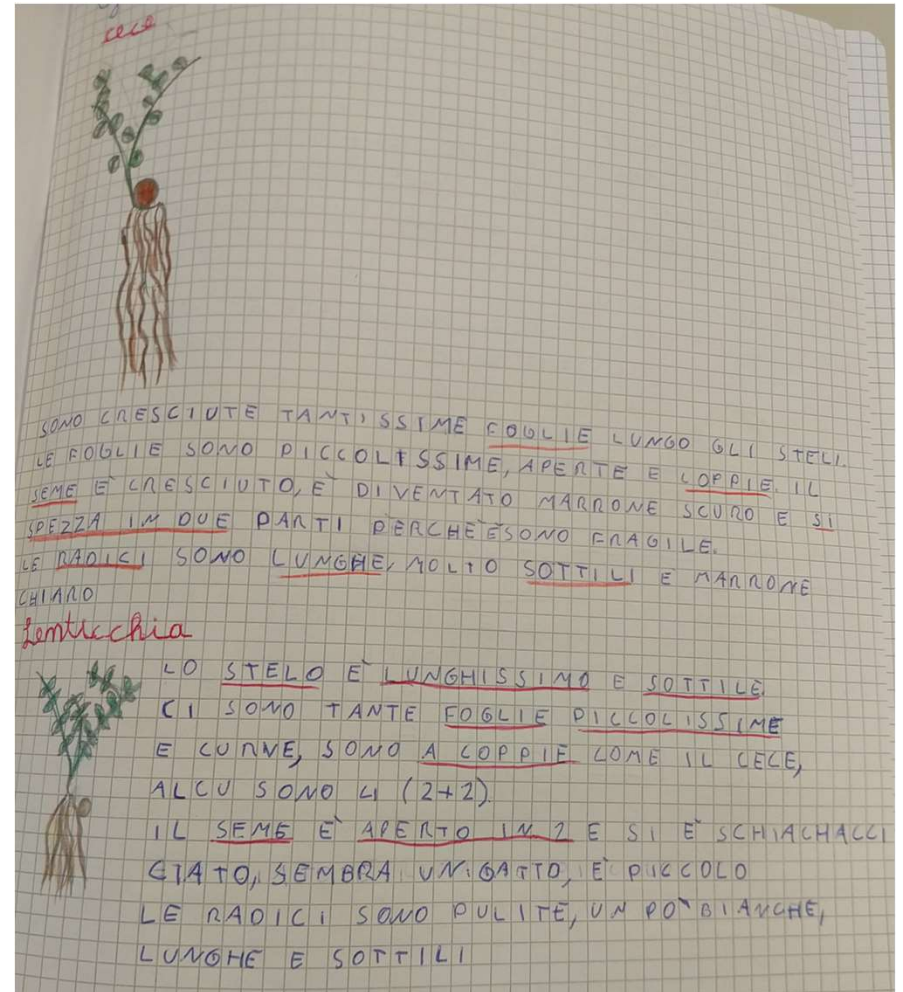 cece
SONO CRESCIUTE TANTISSIME FOGLIE LUNGO GLI STELI.
LE FOGLIE SONO PICCOLISSIME, APERTE E COPPIE. IL
SEME È CRESCIUTO, È DIVENTATO MARRONE SCURO E SI
SPEZZA IN DUE PARTI PERCHÈ ESONO FRAGILE.
LE RADICI SONO LUNGHE, MOLTO SOTTILI E MARRONE
CHIARO
Lenticchia
LO STELO È LUNGHISSIMO E SOTTILE
CI SONO TANTE FOGLIE PICCOLISSIME
E CURVE, SONO A COPPIE COME IL CECE,
ALCU SONO 4 (2+2).
IL SEME È APERTO IN 2 E SI È SCHIACHACCI
CIATO, SEMBRA UN GATTO, È PICCOLO
LE RADICI SONO PULITE, UN PO' BIANCHE,
LUNGHE E SOTTILI